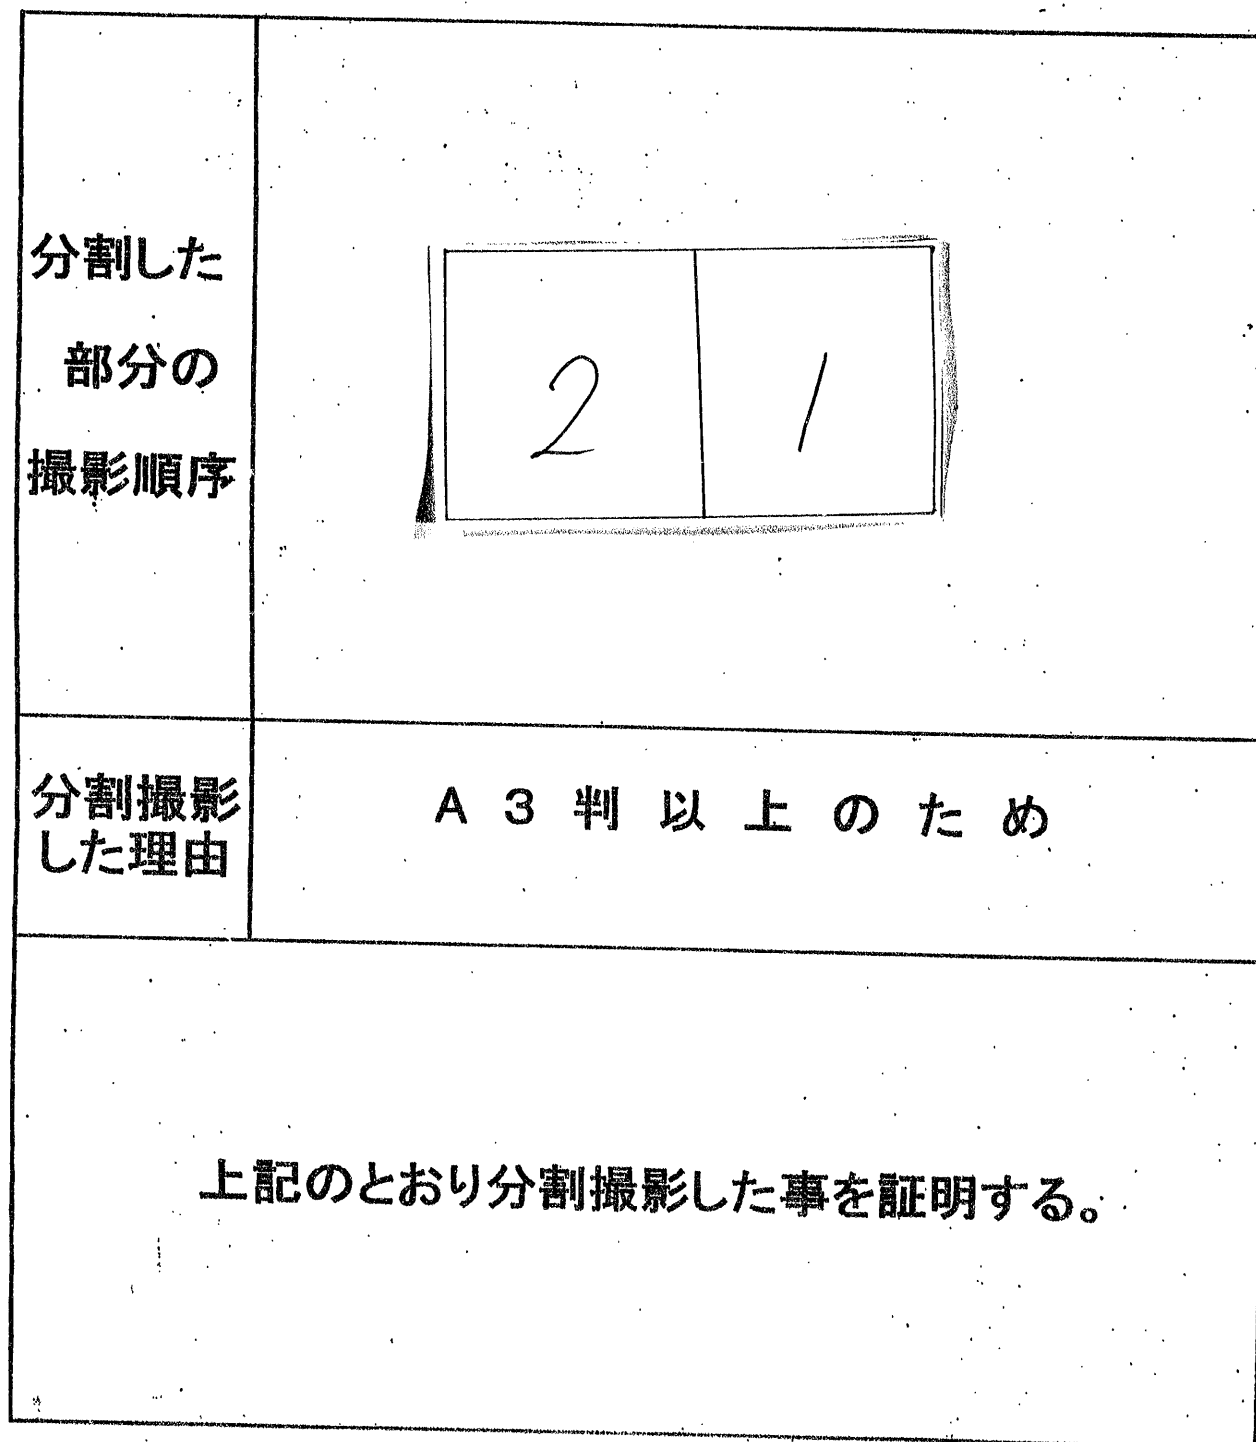 分割した
部分の
撮影順序
2 1
分割撮影
した理由
A3判以上のため
上記のとおり分割撮影した事を証明する。